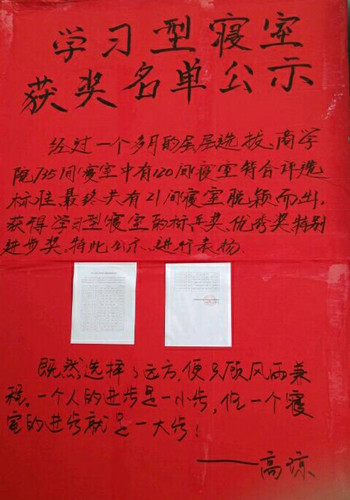 学习型寝室
获奖名单公示
经过一个多月的层层选拔,商学
院135间寝室中有120间寝室符合评选
标准,最终共有21间寝室脱颖而出,
获得学习型寝室的标兵奖,优秀奖,特别
进步奖,特此公示,进行表扬.
既然选择了远方,便只顾风雨兼
程。一个人的进步是一小步,但一个寝
室的进步就是一大步!
——高琼